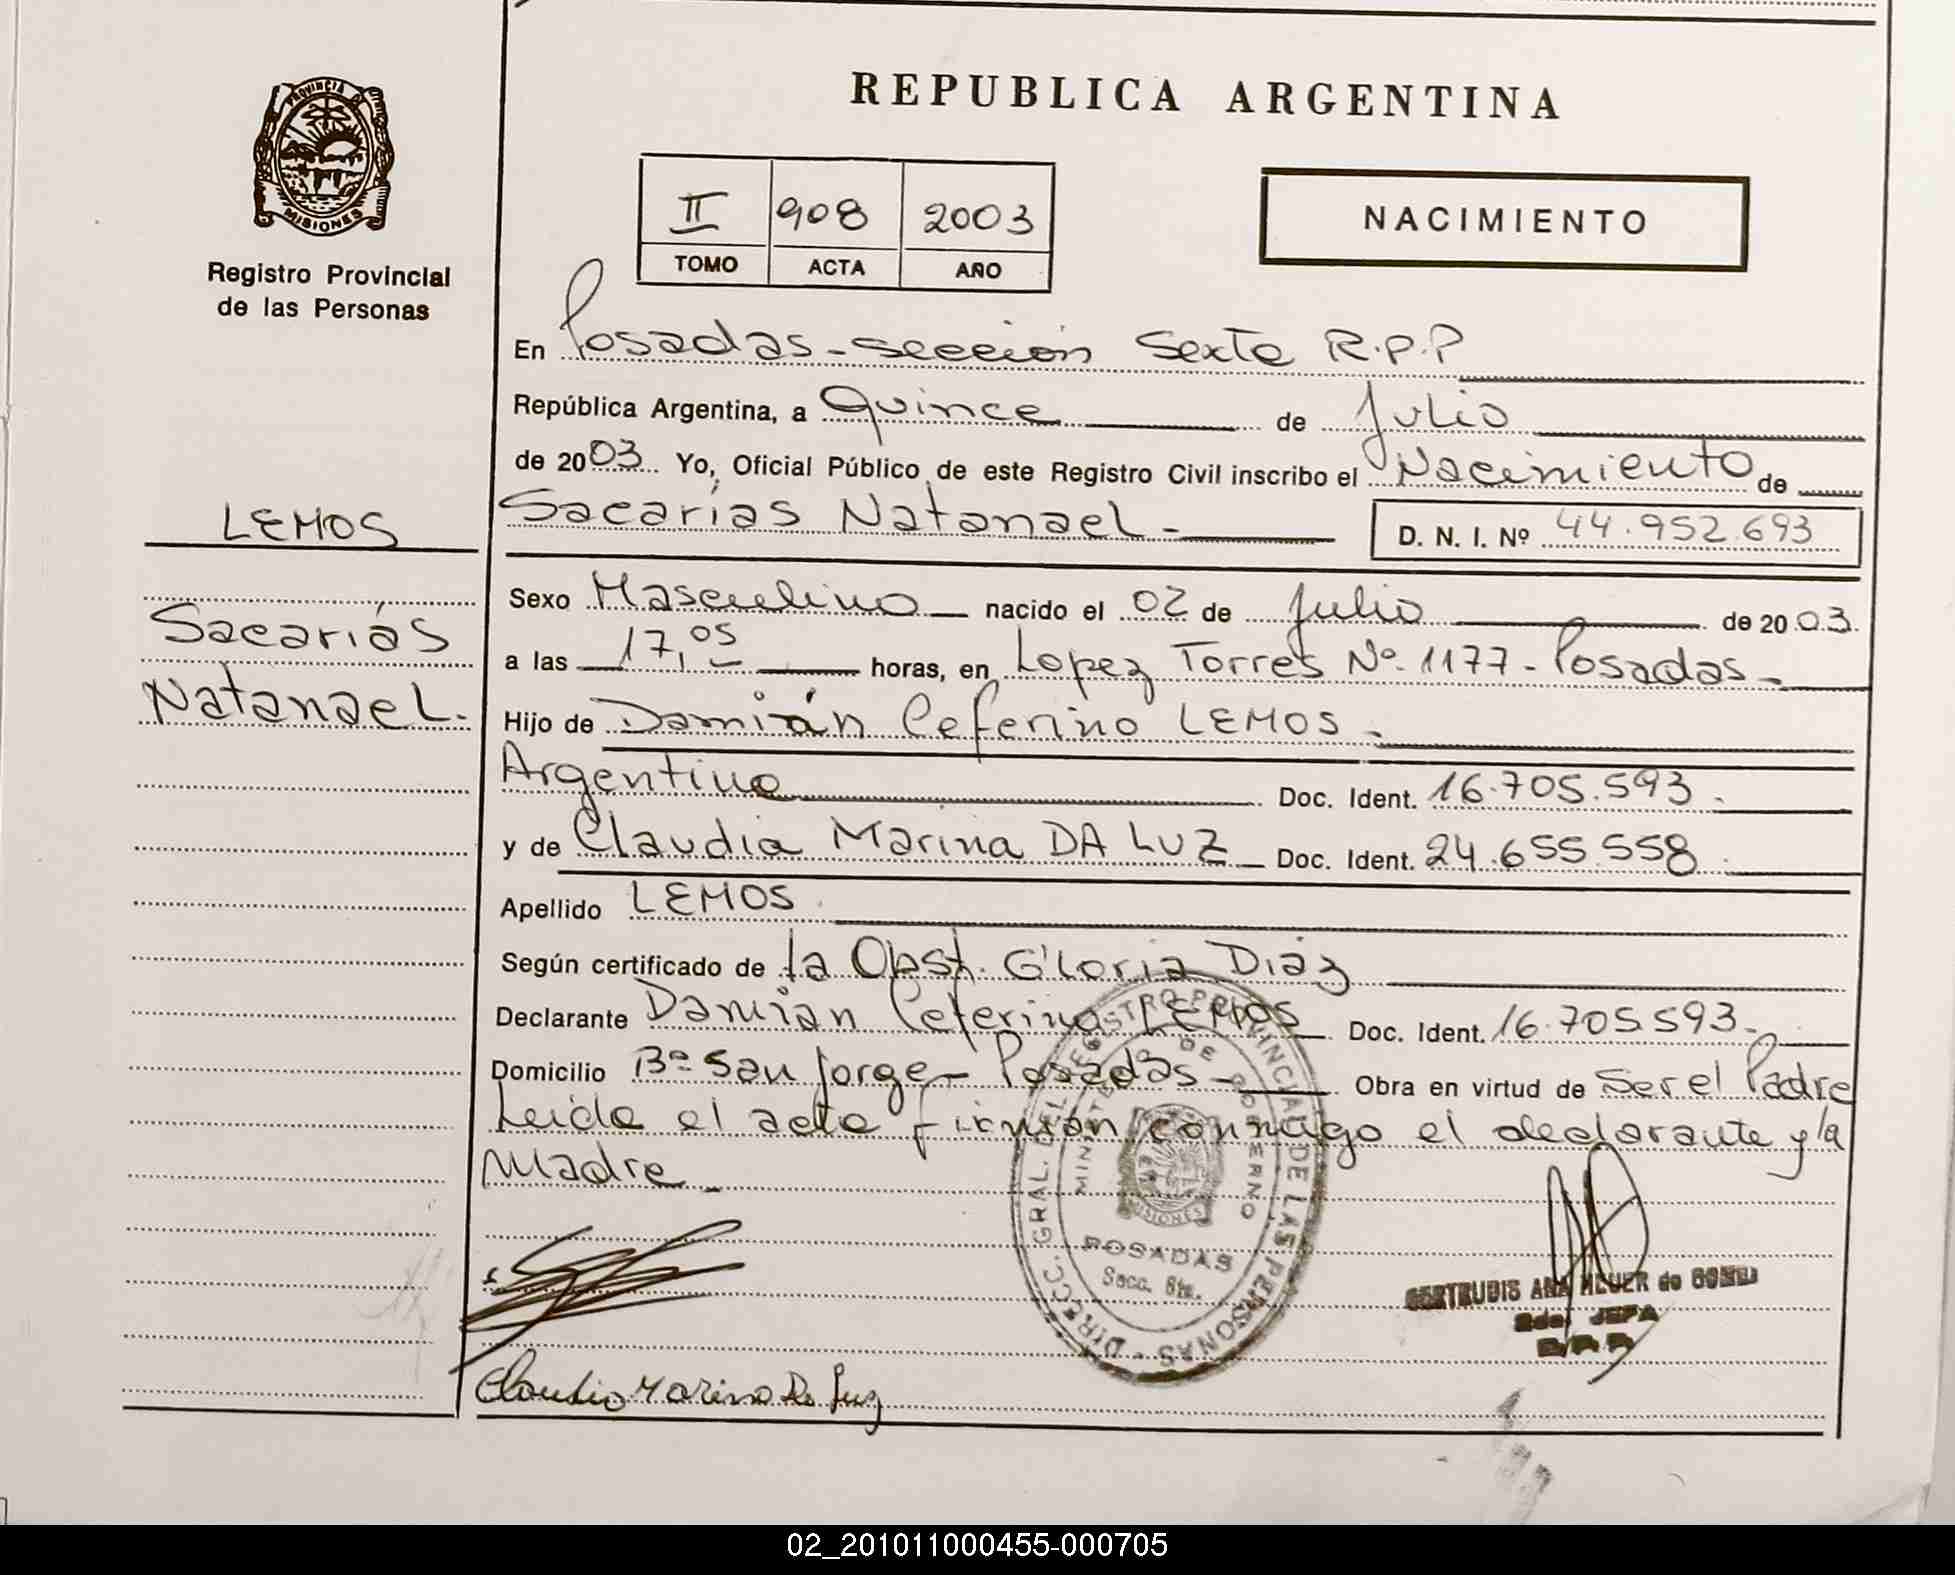 REPUBLICA ARGENTINA
PROVINCIA DE
MISIONES
Registro Provincial
de las Personas
II 908 2003
TOMO ACTA AÑO
NACIMIENTO
En Posadas-sección Sexta R.P.P
República Argentina, a Quince de Julio
de 2003 Yo, Oficial Público de este Registro Civil inscribo el Nacimiento de
Sacarías Natanael - D. N. I. Nº 44.952.693
LEMOS
Sacarías
Natanael.
Sexo Masculino nacido el 02 de Julio de 2003.
a las 17,05 horas, en Lopez Torres Nº 1177 - Posadas -
Hijo de Damián Ceferino LEMOS -
Argentino Doc. Ident. 16.705.593.
y de Claudia Marina DA LUZ Doc. Ident. 24.655.558.
Apellido LEMOS.
Según certificado de la Obst. Gloria Diaz
Declarante Damián Ceferino LEMOS Doc. Ident. 16.705593-
Domicilio Bº San Jorge - Posadas - Obra en virtud de Ser el Padre
Leida el acta firman conmigo el declarante y la
Madre -
DIRECC. GRAL. DEL REGISTRO PROVINCIAL DE LAS PERSONAS -
MINISTERIO DE GOBIERNO
MISIONES
POSADAS
Secc. 6ta.
GERTRUDIS ANA de GOMEZ
2da. JEFA
Claudia Marina Da Luz
02_201011000455-000705